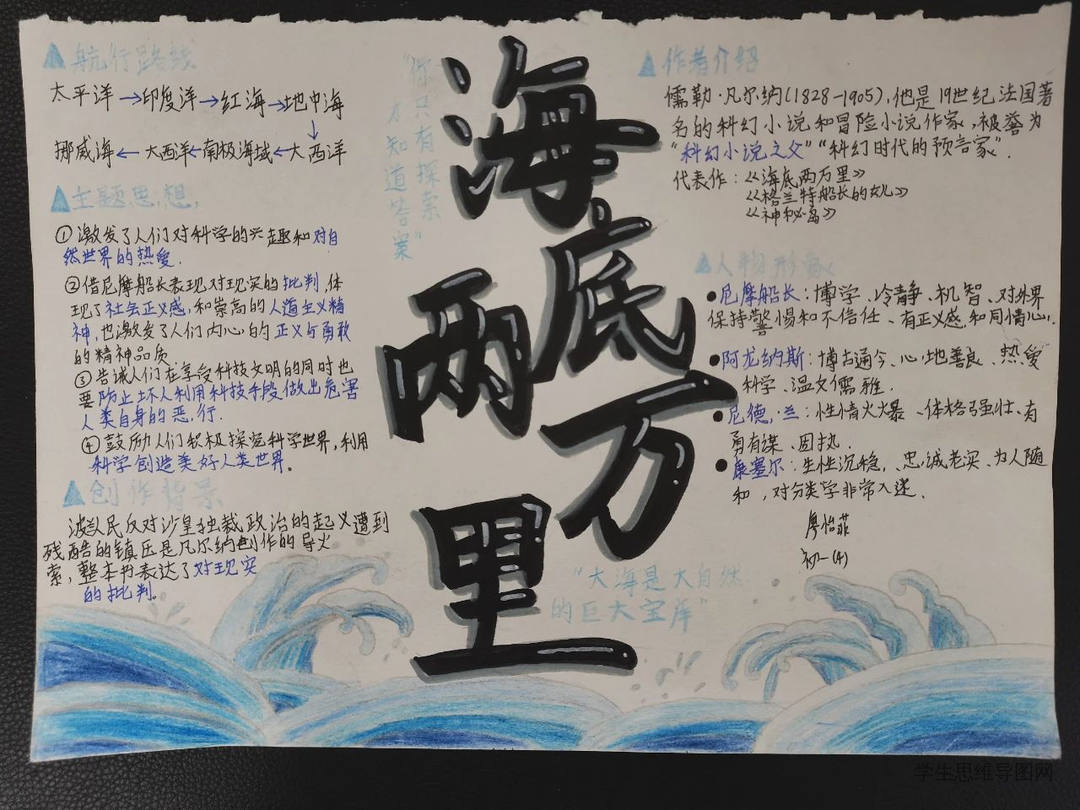 航行路线
太平洋→印度洋→红海→地中海
↓
挪威海←大西洋←南极海域←大西洋
主题思想
①激发了人们对科学的兴趣和对自
然世界的热爱.
②借尼摩船长表现对现实的批判,体
现了社会正义感,和崇高的人道主义精
神,也激发了人们内心的正义与勇敢
的精神品质
③告诫人们在享受科技文明的同时也
要防止坏人利用科技手段做出危害
人类自身的恶行.
④鼓励人们积极探究科学世界,利用
科学创造美好人类世界。
创作背景
波兰民反对沙皇独裁政治的起义遭到
残酷的镇压是凡尔纳创作的导火
索,整本书表达了对现实
的批判。
“你只有探案
才知道答案”
海
底
两
万
里
“大海是大自然
的巨大宝库”
作者介绍
儒勒·凡尔纳(1828-1905),他是19世纪法国著
名的科幻小说和冒险小说作家,被誉为
“科幻小说之父”“科幻时代的预言家”.
代表作:《海底两万里》
《格兰特船长的女儿》
《神秘岛》
人物形象
●尼摩船长:博学、冷静、机智、对外界
保持警惕和不信任、有正义感和同情心.
●阿龙纳斯:博古通今、心地善良、热爱
科学、温文儒雅.
●尼德·兰:性情火爆、体格强壮、有
勇有谋、固执.
●康塞尔:生性沉稳,忠诚老实、为人随
和,对分类学非常入迷.
廖怡菲
初一
学生思维导图网